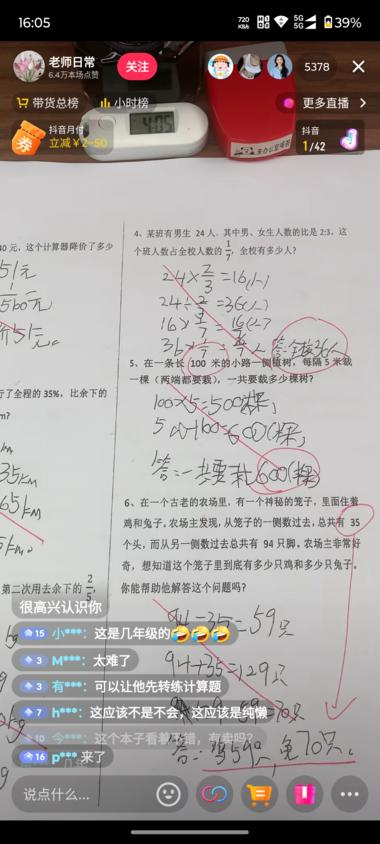 16:05
720 KB/s
5G
5G
39%
老师日常
6.4万本场点赞
关注
5378
带货总榜
小时榜
更多直播
抖音月付
立减￥2-50
券
4:05
抖音
1/42
4、某班有男生 24 人，其中男、女生人数的比是 2:3，这
个班人数占全校人数的 1/7，全校有多少人？
40 元，这个计算器降价了多少
24×2/3=16(人)
5、在一条长 100 米的小路一侧植树，每隔 5 米栽
一棵（两端都要栽），一共要栽多少棵树？
行了全程的 35%，比余下的
100×5=500棵，
答：一共要 600(棵)
35km
65km
6、在一个古老的农场里，有一个神秘的笼子，里面住着
鸡和兔子。农场主发现，从笼子的一侧数过去，总共有 35
个头，而从另一侧数过去总共有 94 只脚。农场主非常好
奇，想知道这个笼子里到底有多少只鸡和多少只兔子。
第二次用去余下的 2/5，
你能帮助他解答这个问题吗？
94-35=59只
94+35=129只
答：鸡59只，兔70只。
很高兴认识你
15 小***：这是几年级的🤣🤣🤣
3 M***：太难了
3 有***：可以让他先转练计算题
7 h***：这应该不是不会，这应该是纯懒
10 今***：这个本子看着不错，有卖吗？
16 p*** 来了
说点什么...